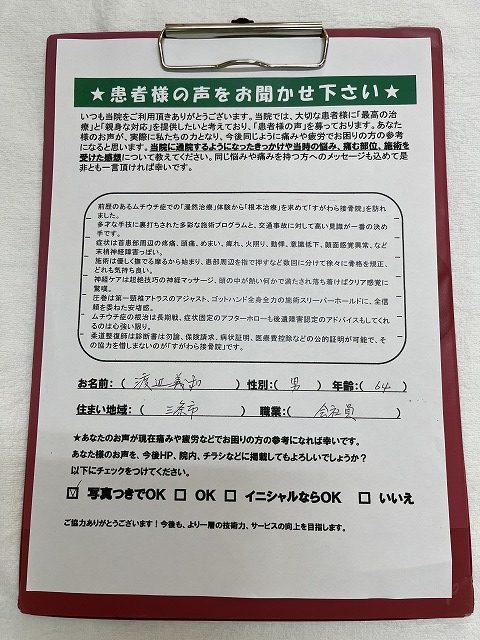 ★患者様の声をお聞かせ下さい★
いつも当院をご利用頂きありがとうございます。当院では、大切な患者様に「最高の治
療」と「親身な対応」を提供したいと考えており、「患者様の声」を募っております。あなた
様のお声が、実際に私たちの力となり、今後同じように痛みや疲労でお困りの方の参考
になると思います。当院に通院するようになったきっかけや当時の悩み、痛む部位、施術を
受けた感想について教えてください。同じ悩みや痛みを持つ方へのメッセージも込めて是
非とも一言頂ければ幸いです。
前歴のあるムチウチ症での「漫然治療」体験から「根本治療」を求めて「すがわら接骨院」を訪れ
ました。
多才な手技に裏打ちされた多彩な施術プログラムと、交通事故に対して高い見識が一番の決め
手です。
症状は首患部周辺の疼痛、頭痛、めまい、痺れ、火照り、動悸、意識低下、顔面感覚異常、など
末梢神経障害っぽい。
施術は優しく撫でる摩るから始まり、患部周辺を指で押すなど数回に分けて徐々に骨格を規正、
どれも気持ち良い。
神経ケアは超絶技巧の神経マッサージ、頭の中が熱い何かで満たされ落ち着けばクリア感覚に
驚嘆。
圧巻は第一頸椎アトラスのアジャスト、ゴットハンド全身全力の施術スリーパーホールドに、全信
頼を委ねた安堵感。
ムチウチ症の根治は長期戦、症状固定のアフターホローも後遺障害認定のアドバイスもしてくれ
るのは心強い限り。
柔道整復師は診断書は勿論、保険請求、病状証明、医療費控除などの公的証明が可能で、そ
の協力を惜しまないのが「すがわら接骨院」です。
お名前:( 渡辺義和 ) 性別:( 男 ) 年齢:( 64 )
住まい地域:( 三条市 ) 職業:( 会社員 )
★あなたのお声が現在痛みや疲労などでお困りの方の参考になれば幸いです。
あなた様のお声を、今後HP、院内、チラシなどに掲載してもよろしいでしょうか?
以下にチェックをつけてください。
☑ 写真つきでOK □ OK □ イニシャルならOK □ いいえ
ご協力ありがとうございます!今後も、より一層の技術力、サービスの向上を目指します。